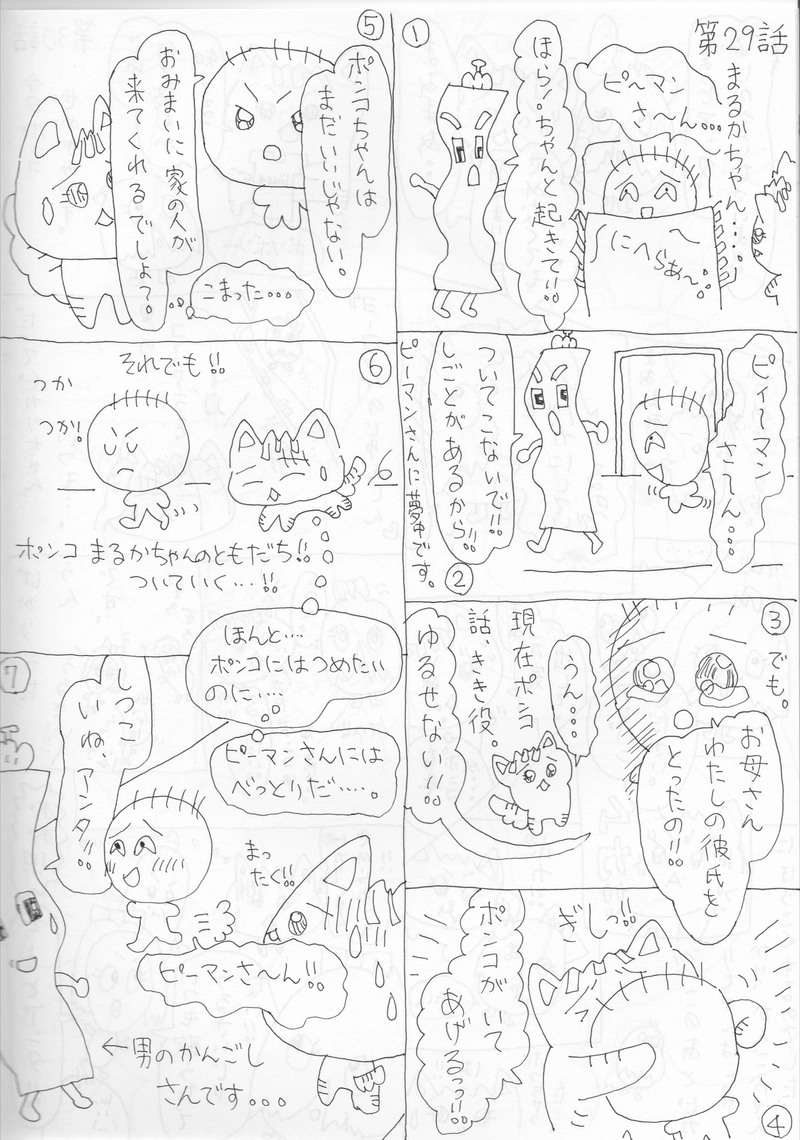 第29話
①
まるかちゃん……
ピーマン
さ〜ん…
にへらぁ〜
ほら!ちゃんと起きて!!
ピィ〜マン
さ〜ん…
ついてこないで!!
しごとがあるから!!
ピーマンさんに夢中です。
②
③
でも。
お母さん
わたしの彼氏を
とったの!!
うん…
現在ポンコ
話、きき役。
ゆるせない!!
④
ぎしっ!!
ポンコがいて
あげるっっ!!
⑤
ポンコちゃんは
まだいいじゃない。
おみまいに家の人が
来てくれるでしょ?
こまった…
⑥
それでも!!
つか
つか!
ポンコ まるかちゃんのともだち!!
ついていく…!!
ほんと…
ポンコにはつめたい
のに‥‥
ピーマンさんには
べっとりだ‥‥。
⑦
しつこ
いね、アンタ!!
まっ
たく!!
ピーマンさ〜ん!!
←男のかんごし
さんです。。。